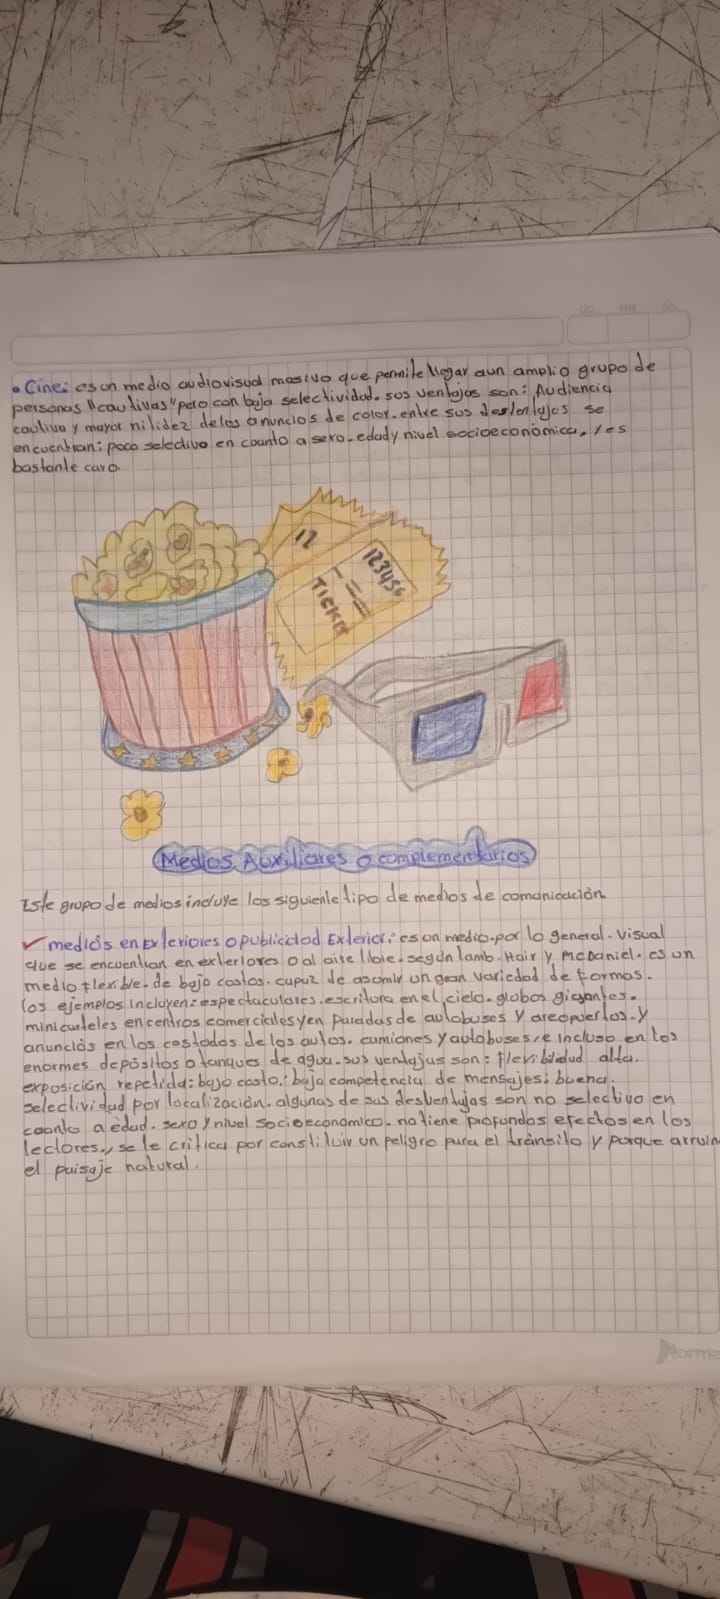 DD MM AA
• Cine: es un medio audiovisual masivo que permite llegar aun amplio grupo de
personas "cautivas" pero con baja selectividad. sus ventajas son: Audiencia
cautiva y mayor nitidez de los anuncios de color. entre sus desventajas se
encuentran: poco selectivo en cuanto a sexo. edad y nivel socioeconòmica, y es
bastante caro.
12
123456
TICKET
Medios Auxiliares o complementarios
Este grupo de medios incluye los siguiente tipo de medios de comunicación
✓ medios en Exteriores o publicidad Exterior: es un medio. por lo general. visual
que se encuentran en exteriores o al aire libre. según lamb. Hair y McDaniel. es un
medio flexible. de bajo costos. capaz de asomir un gran variedad de formas.
los ejemplos incluyen: espectaculares. escritura en el cielo. globos gigantes.
minicarteles en centros comerciales y en paradas de autobuses y areopuertos. y
anunciòs en los costados de los autos. camiones y autobuses, e incluso en los
enormes depósitos o tanques de agua. sus ventajas son: flexiblidad alta.
exposición repetida: bajo costo: baja competencia de mensajes: buena.
selectividad por localización. algunas de sus desventajas son no selectivo en
cuanto a edad. sexo y nivel socioeconomico. no tiene profundos efectos en los
lectores, se le critica por constituir un peligro para el trànsito y porque arruin
el paisaje natural.
Norma